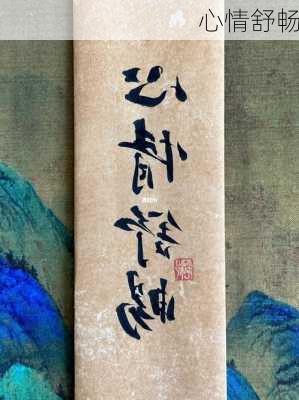 心情舒畅
心情舒畅